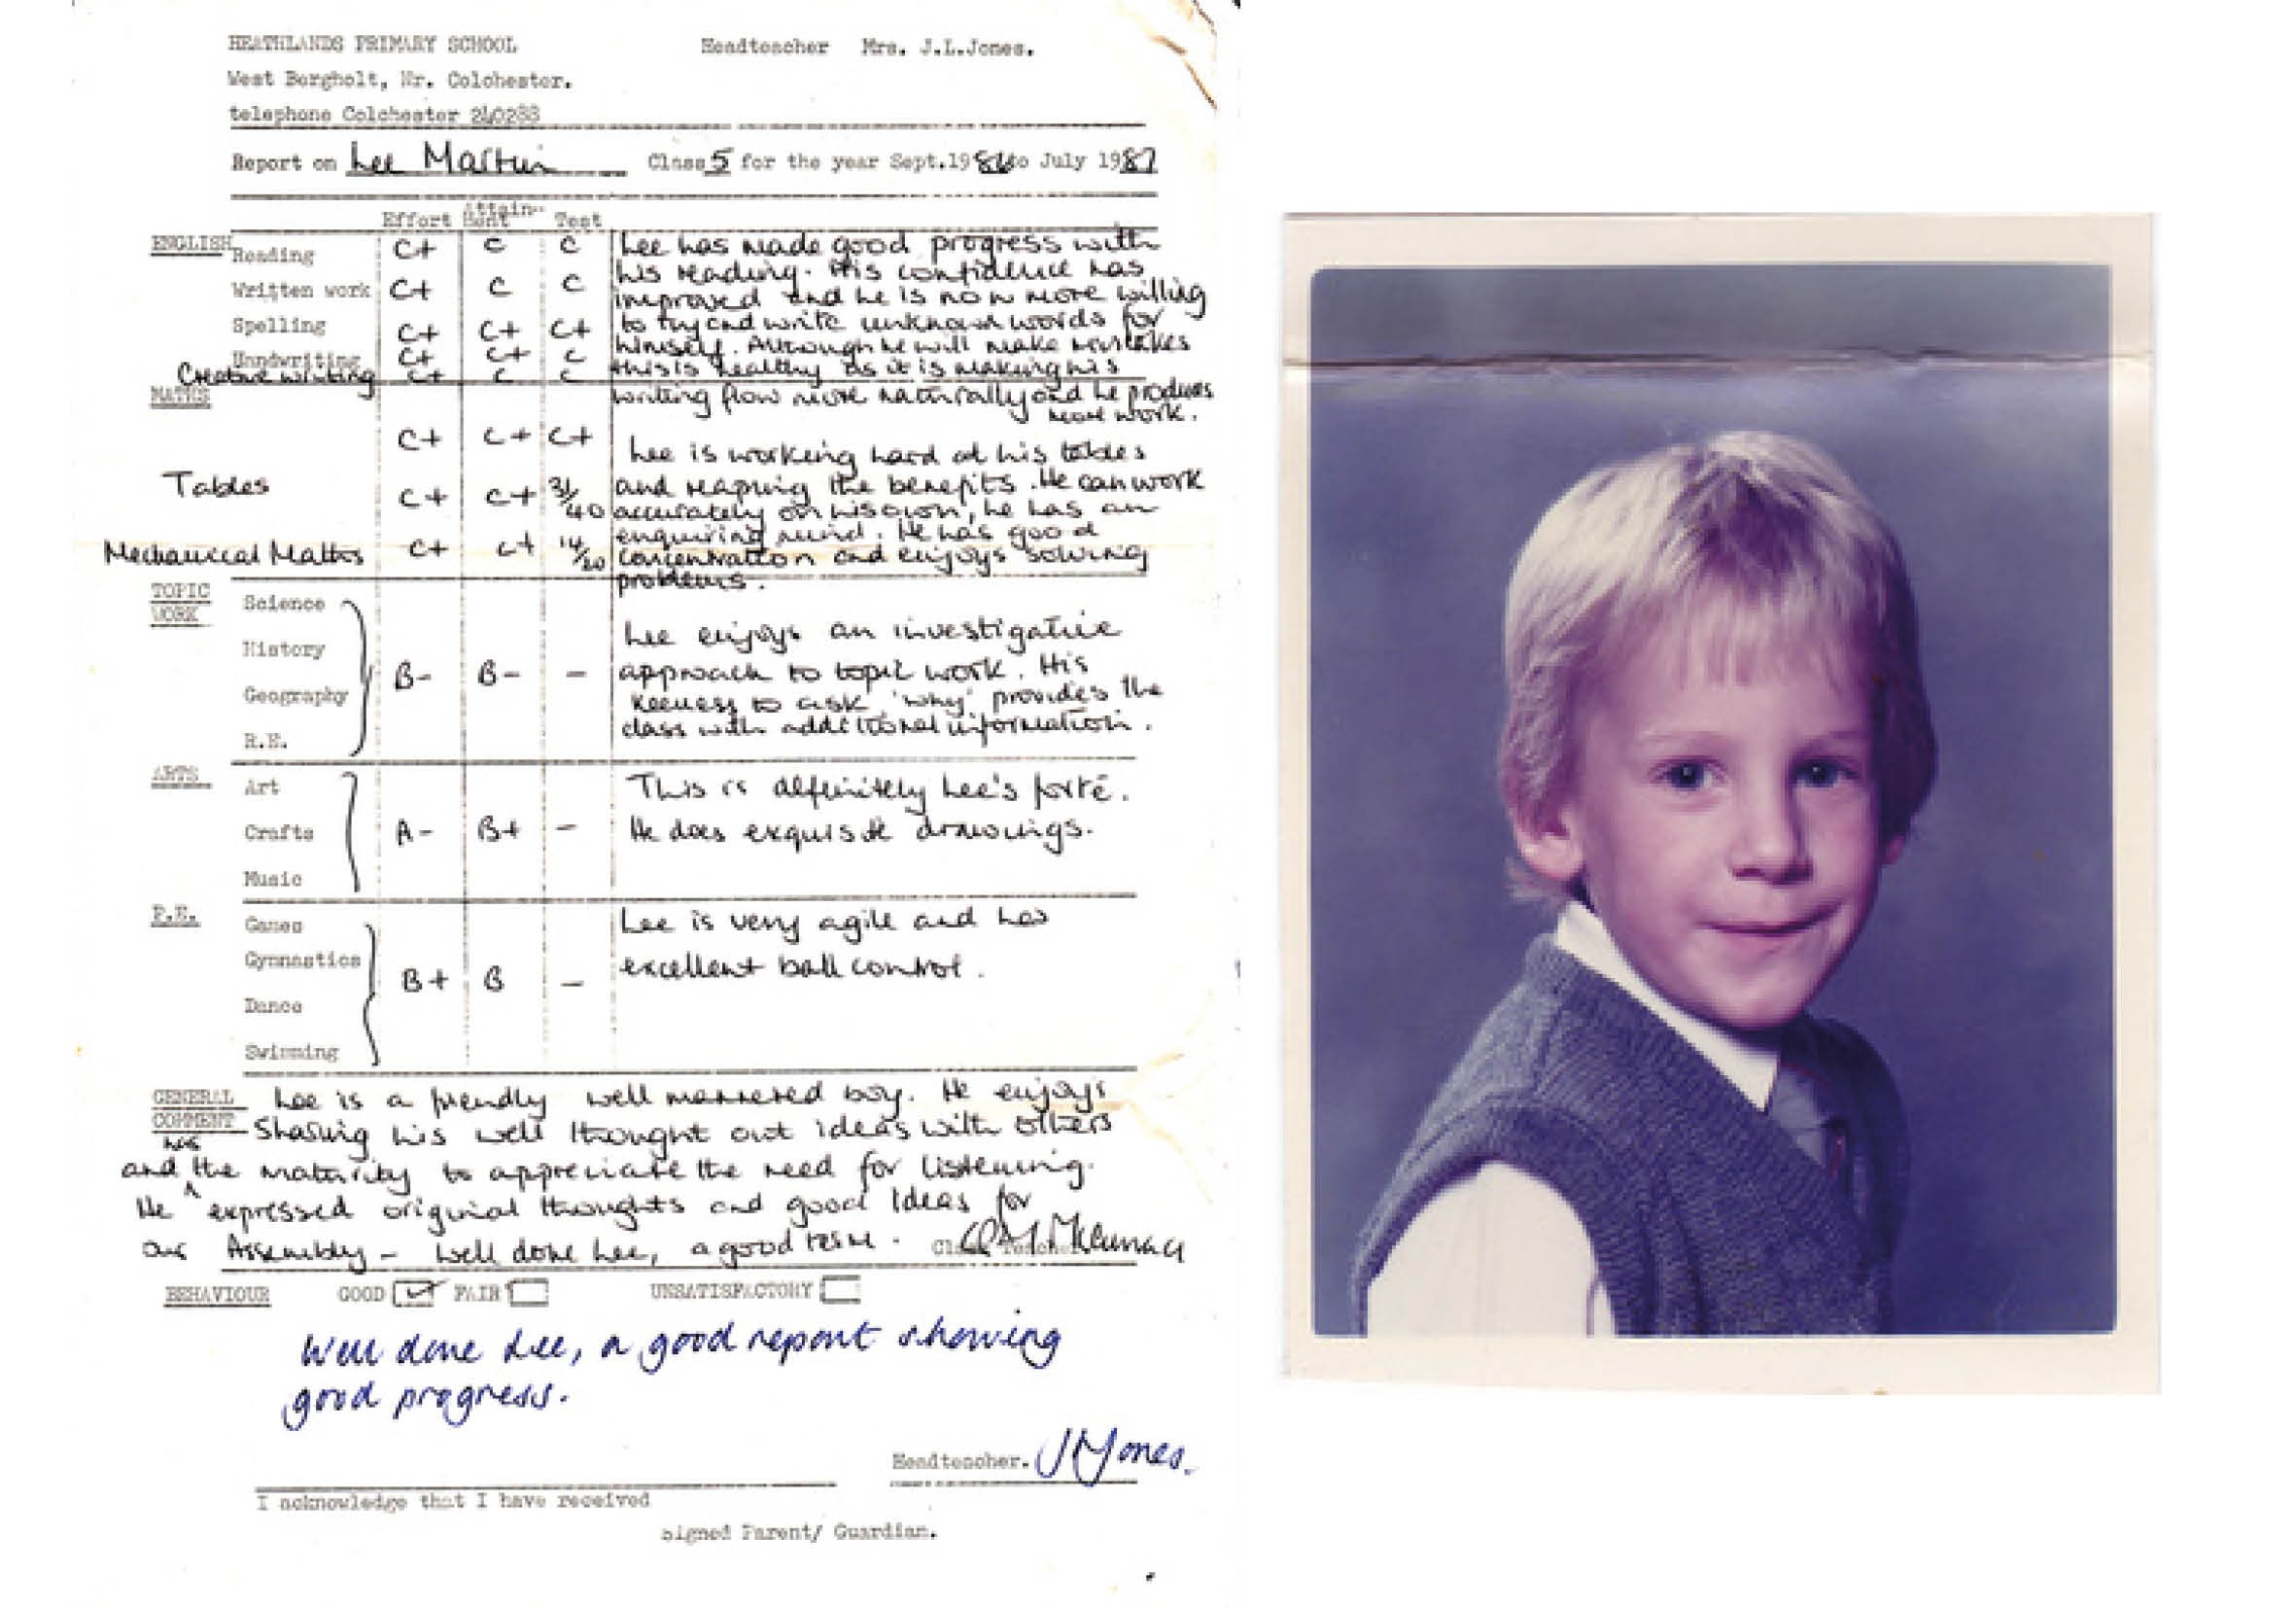 HEATHLANDS PRIMARY SCHOOL Headteacher Mrs. J.L.Jones.
West Bergholt, Nr. Colchester.
telephone Colchester 240288
Report on Lee Martin Class 5 for the year Sept.1986 to July 1987
Effort Attainment Test
ENGLISH
Reading C+ C C
Written work C+ C C
Spelling C+ C+ C+
Handwriting C+ C+ C
Creative writing C+ C C
Lee has made good progress with
his reading. His confidence has
improved and he is now more willing
to try and write unknown words for
himself. Although he will make mistakes
this is healthy as it is making his
writing flow more naturally and he produces
more work.
MATHS
C+ C+ C+
Tables C+ C+ 31/40
Mechanical Maths C+ C+ 14/20
Lee is working hard at his tables
and reaping the benefits. He can work
accurately on his own, he has an
enquiring mind. He has good
concentration and enjoys solving
problems.
TOPIC
WORK
Science
History
Geography
R.E.
B- B- -
Lee enjoys an investigative
approach to topic work. His
keeness to ask 'why' provides the
class with additional information.
ARTS
Art
Crafts
Music
A- B+ -
This is definitely Lee's forté.
He does exquisite drawings.
P.E.
Games
Gymnastics
Dance
Swimming
B+ B -
Lee is very agile and has
excellent ball control.
GENERAL
COMMENT
Lee is a friendly well mannered boy. He enjoys
sharing his well thought out ideas with others
and the maturity to appreciate the need for listening.
He has expressed original thoughts and good ideas for
our Assembly - well done Lee, a good term. Class Teacher
BEHAVIOUR GOOD ✓ FAIR UNSATISFACTORY
Well done Lee, a good report showing
good progress.
Headteacher. J L Jones.
I acknowledge that I have received
Signed Parent/ Guardian.